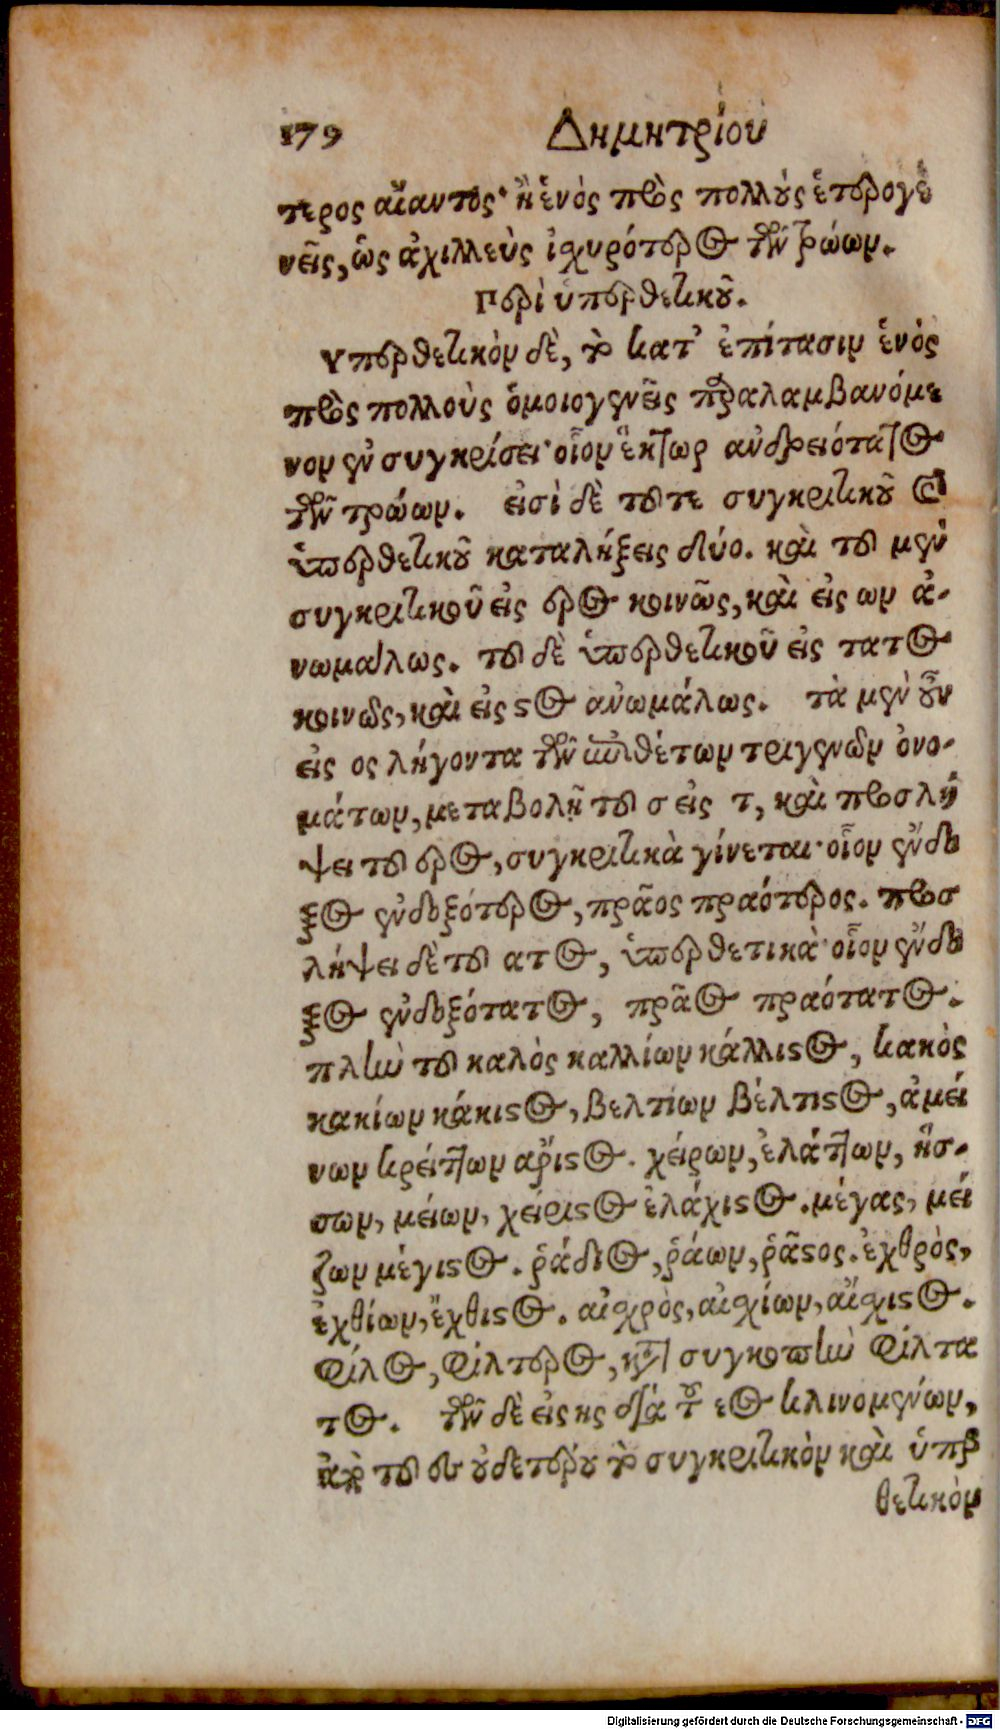 179 Δημητρίου
τερος αἴαντος· ἢ ἑνὸς πρὸς πολλοὺς ἑτερογε
νεῖς, ὡς ἀχιλλεὺς ἰσχυρότερος τῶν τρώων.
Περὶ ὑπερθετικοῦ.
Υπερθετικὸν δὲ, τὸ κατ' ἐπίτασιν ἑνὸς
πρὸς πολλοὺς ὁμοιογενεῖς παραλαμβανόμε
νον ἐν συγκρίσει· οἷον ἕκτωρ ἀνδρειότατος
τῶν τρώων. εἰσὶ δὲ τοῦτε συγκριτικοῦ καὶ
ὑπερθετικοῦ καταλήξεις δύο. καὶ τοῦ μὲν
συγκριτικοῦ εἰς ερος κοινῶς, καὶ εἰς ων ἀ-
νωμάλως. τοῦ δὲ ὑπερθετικοῦ εἰς τατος
κοινῶς, καὶ εἰς στος ἀνωμάλως. τὰ μὲν οὖν
εἰς ος λήγοντα τῶν ἐπιθέτων τριγενῶν ὀνο-
μάτων, μεταβολῇ τοῦ σ εἰς τ, καὶ προσλή
ψει τοῦ ερος, συγκριτικὰ γίνεται· οἷον ἔνδο
ξος ἐνδοξότερος, πρᾶος πραότερος. προσ
λήψει δὲ τοῦ ατος, ὑπερθετικὰ· οἷον ἔνδο
ξος ἐνδοξότατος, πρᾶος πραότατος.
πλὴν τοῦ καλὸς καλλίων κάλλιστος, κακὸς
κακίων κάκιστος, βελτίων βέλτιστος, ἀμεί
νων κρείττων ἄριστος. χείρων, ἐλάττων, ἥσ-
σων, μείων, χείριστος ἐλάχιστος. μέγας, μεί
ζων μέγιστος. ῥάδιος, ῥάων, ῥᾶστος. ἐχθρὸς,
ἐχθίων, ἔχθιστος. αἰσχρὸς, αἰσχίων, αἴσχιστος.
Φίλος, Φίλτερος, κατὰ συγκοπὴν Φίλτα
τος. τῶν δὲ εἰς ης διὰ τοῦ εος κλινομένων,
ἀπὸ τοῦ οὐδετέρου τὸ συγκριτικὸν καὶ ὑπερ
θετικὸν
Digitalisierung gefördert durch die Deutsche Forschungsgemeinschaft - DFG